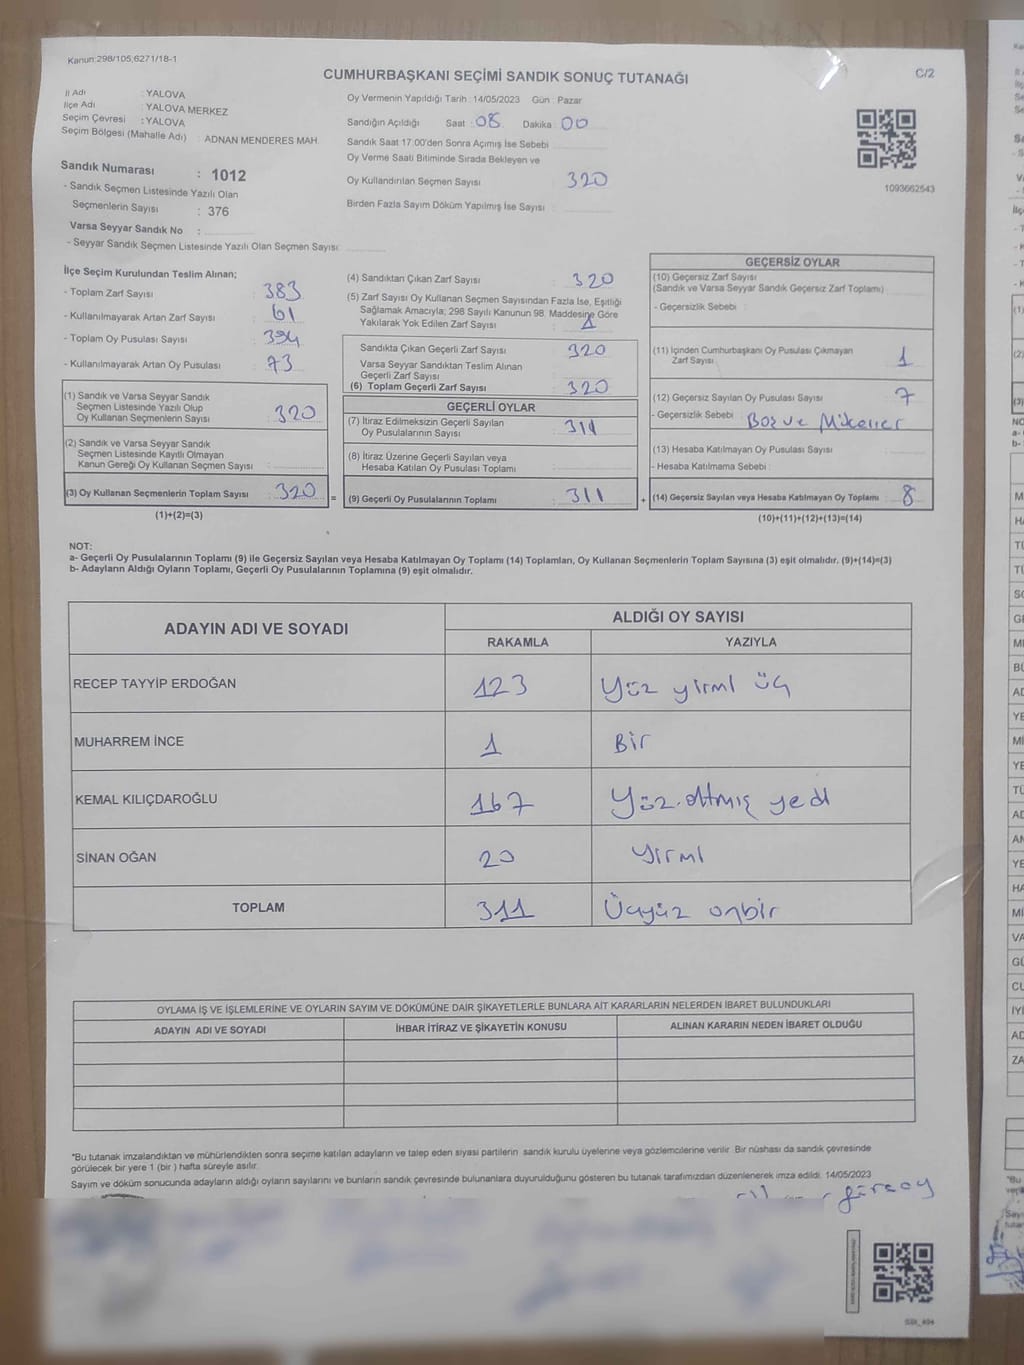 Kanun:298/105,6271/18-1
CUMHURBAŞKANI SEÇİMİ SANDIK SONUÇ TUTANAĞI
C/2
İl Adı : YALOVA
İlçe Adı : YALOVA MERKEZ
Seçim Çevresi : YALOVA
Seçim Bölgesi (Mahalle Adı) : ADNAN MENDERES MAH.
Sandık Numarası : 1012
- Sandık Seçmen Listesinde Yazılı Olan
Seçmenlerin Sayısı : 376
Varsa Seyyar Sandık No :
- Seyyar Sandık Seçmen Listesinde Yazılı Olan Seçmen Sayısı:
Oy Vermenin Yapıldığı Tarih : 14/05/2023 Gün : Pazar
Sandığın Açıldığı Saat : 08 Dakika : 00
Sandık Saat 17.00'den Sonra Açımış İse Sebebi
Oy Verme Saati Bitiminde Sırada Bekleyen ve
Oy Kullandırılan Seçmen Sayısı : 320
Birden Fazla Sayım Döküm Yapılmış İse Sayısı :
1093662543
İlçe Seçim Kurulundan Teslim Alınan;
- Toplam Zarf Sayısı : 383
- Kullanılmayarak Artan Zarf Sayısı : 61
- Toplam Oy Pusulası Sayısı : 394
- Kullanılmayarak Artan Oy Pusulası : 73
(1) Sandık ve Varsa Seyyar Sandık
Seçmen Listesinde Yazılı Olup
Oy Kullanan Seçmenlerin Sayısı : 320
(2) Sandık ve Varsa Seyyar Sandık
Seçmen Listesinde Kayıtlı Olmayan
Kanun Gereği Oy Kullanan Seçmen Sayısı :
(3) Oy Kullanan Seçmenlerin Toplam Sayısı : 320
(1)+(2)=(3)
(4) Sandıktan Çıkan Zarf Sayısı : 320
(5) Zarf Sayısı Oy Kullanan Seçmen Sayısından Fazla İse, Eşitliği
Sağlamak Amacıyla; 298 Sayılı Kanunun 98. Maddesine Göre
Yakılarak Yok Edilen Zarf Sayısı :
Sandıkta Çıkan Geçerli Zarf Sayısı : 320
Varsa Seyyar Sandıktan Teslim Alınan
Geçerli Zarf Sayısı :
(6) Toplam Geçerli Zarf Sayısı : 320
GEÇERLİ OYLAR
(7) İtiraz Edilmeksizin Geçerli Sayılan
Oy Pusulalarının Sayısı : 311
(8) İtiraz Üzerine Geçerli Sayılan veya
Hesaba Katılan Oy Pusulası Toplamı :
(9) Geçerli Oy Pusulalarının Toplamı : 311
GEÇERSİZ OYLAR
(10) Geçersiz Zarf Sayısı
(Sandık ve Varsa Seyyar Sandık Geçersiz Zarf Toplamı) :
- Geçersizlik Sebebi :
(11) İçinden Cumhurbaşkanı Oy Pusulası Çıkmayan
Zarf Sayısı : 1
(12) Geçersiz Sayılan Oy Pusulası Sayısı : 7
- Geçersizlik Sebebi : Boş ve
(13) Hesaba Katılmayan Oy Pusulası Sayısı :
- Hesaba Katılmama Sebebi :
(14) Geçersiz Sayılan veya Hesaba Katılmayan Oy Toplamı : 8
(10)+(11)+(12)+(13)=(14)
NOT:
a- Geçerli Oy Pusulalarının Toplamı (9) ile Geçersiz Sayılan veya Hesaba Katılmayan Oy Toplamı (14) Toplamları, Oy Kullanan Seçmenlerin Toplam Sayısına (3) eşit olmalıdır. (9)+(14)=(3)
b- Adayların Aldığı Oyların Toplamı, Geçerli Oy Pusulalarının Toplamına (9) eşit olmalıdır.
ADAYIN ADI VE SOYADI
ALDIĞI OY SAYISI
RAKAMLA YAZIYLA
RECEP TAYYİP ERDOĞAN 123 Yüz yirmi üç
MUHARREM İNCE 1 Bir
KEMAL KILIÇDAROĞLU 167 Yüz altmış yedi
SİNAN OĞAN 20 Yirmi
TOPLAM 311 Üçyüz onbir
OYLAMA İŞ VE İŞLEMLERİNE VE OYLARIN SAYIM VE DÖKÜMÜNE DAİR ŞİKAYETLERLE BUNLARA AİT KARARLARIN NELERDEN İBARET BULUNDUKLARI
ADAYIN ADI VE SOYADI
İHBAR İTİRAZ VE ŞİKAYETİN KONUSU
ALINAN KARARIN NEDEN İBARET OLDUĞU
*Bu tutanak imzalandıktan ve mühürlendikten sonra seçime katılan adayların ve talep eden siyasi partilerin sandık kurulu üyelerine veya gözlemcilerine verilir. Bir nüshası da sandık çevresinde
görülecek bir yere 1 (bir ) hafta süreyle asılır.
Sayım ve döküm sonucunda adayların aldığı oyların sayılarını ve bunların sandık çevresinde bulunanlara duyurulduğunu gösteren bu tutanak tarafımızdan düzenlenerek imza edildi. 14/05/2023